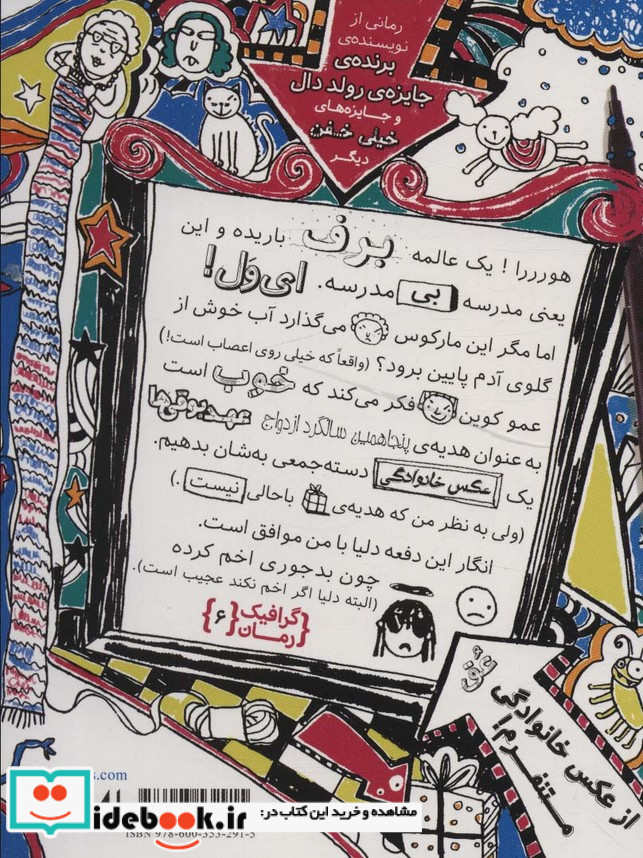 رمانی از
نویسنده‌ی
برنده‌ی
جایزه‌ی رولد دال
و جایزه‌های
خیلی خفن
دیگر
هورررا ! یک عالمه برف باریده و این
یعنی مدرسه بی مدرسه. ای‌وَل!
اما مگر این مارکوس می‌گذارد آب خوش از
گلوی آدم پایین برود؟ (واقعاً که خیلی روی اعصاب است!)
عمو کوین فکر می‌کند که خوب است
به عنوان هدیه‌ی پنجاهمین سالگرد ازدواج عهدبوقی‌ها
یک عکس خانوادگی دسته‌جمعی به‌شان بدهیم.
(ولی به نظر من که هدیه‌ی باحالی نیست.)
انگار این دفعه دلیا با من موافق است.
چون بدجوری اخم کرده
(البته دلیا اگر اخم نکند عجیب است).
گرافیک
رمان
{۶}
از عکس خانوادگی
متنفرم!
s.com
مشاهده و خرید این کتاب در:
idebook.ir
ISBN 978-600-353-291-5